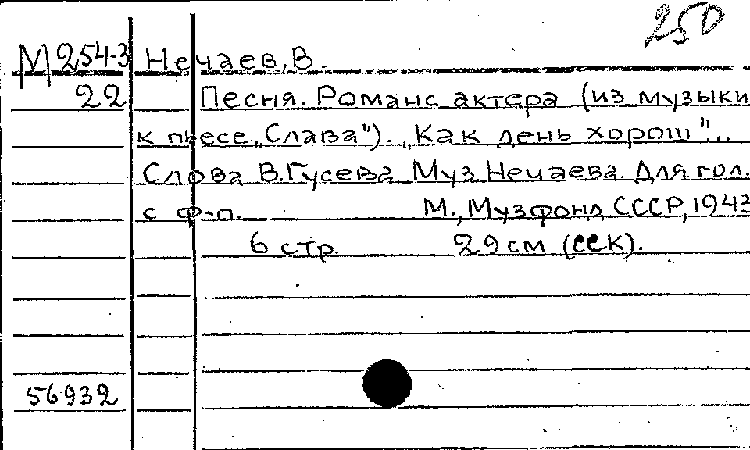 250
М254-3 Нечаев, В.
22 Песня. Романс актера (из музыки
к пьесе „Слава"). „Как день хорош"..
Слова В.Гусева Муз Нечаева Для гол.
с ф-п. М., Музфонд СССР, 1943
6 стр 29 см (ССК).
56932